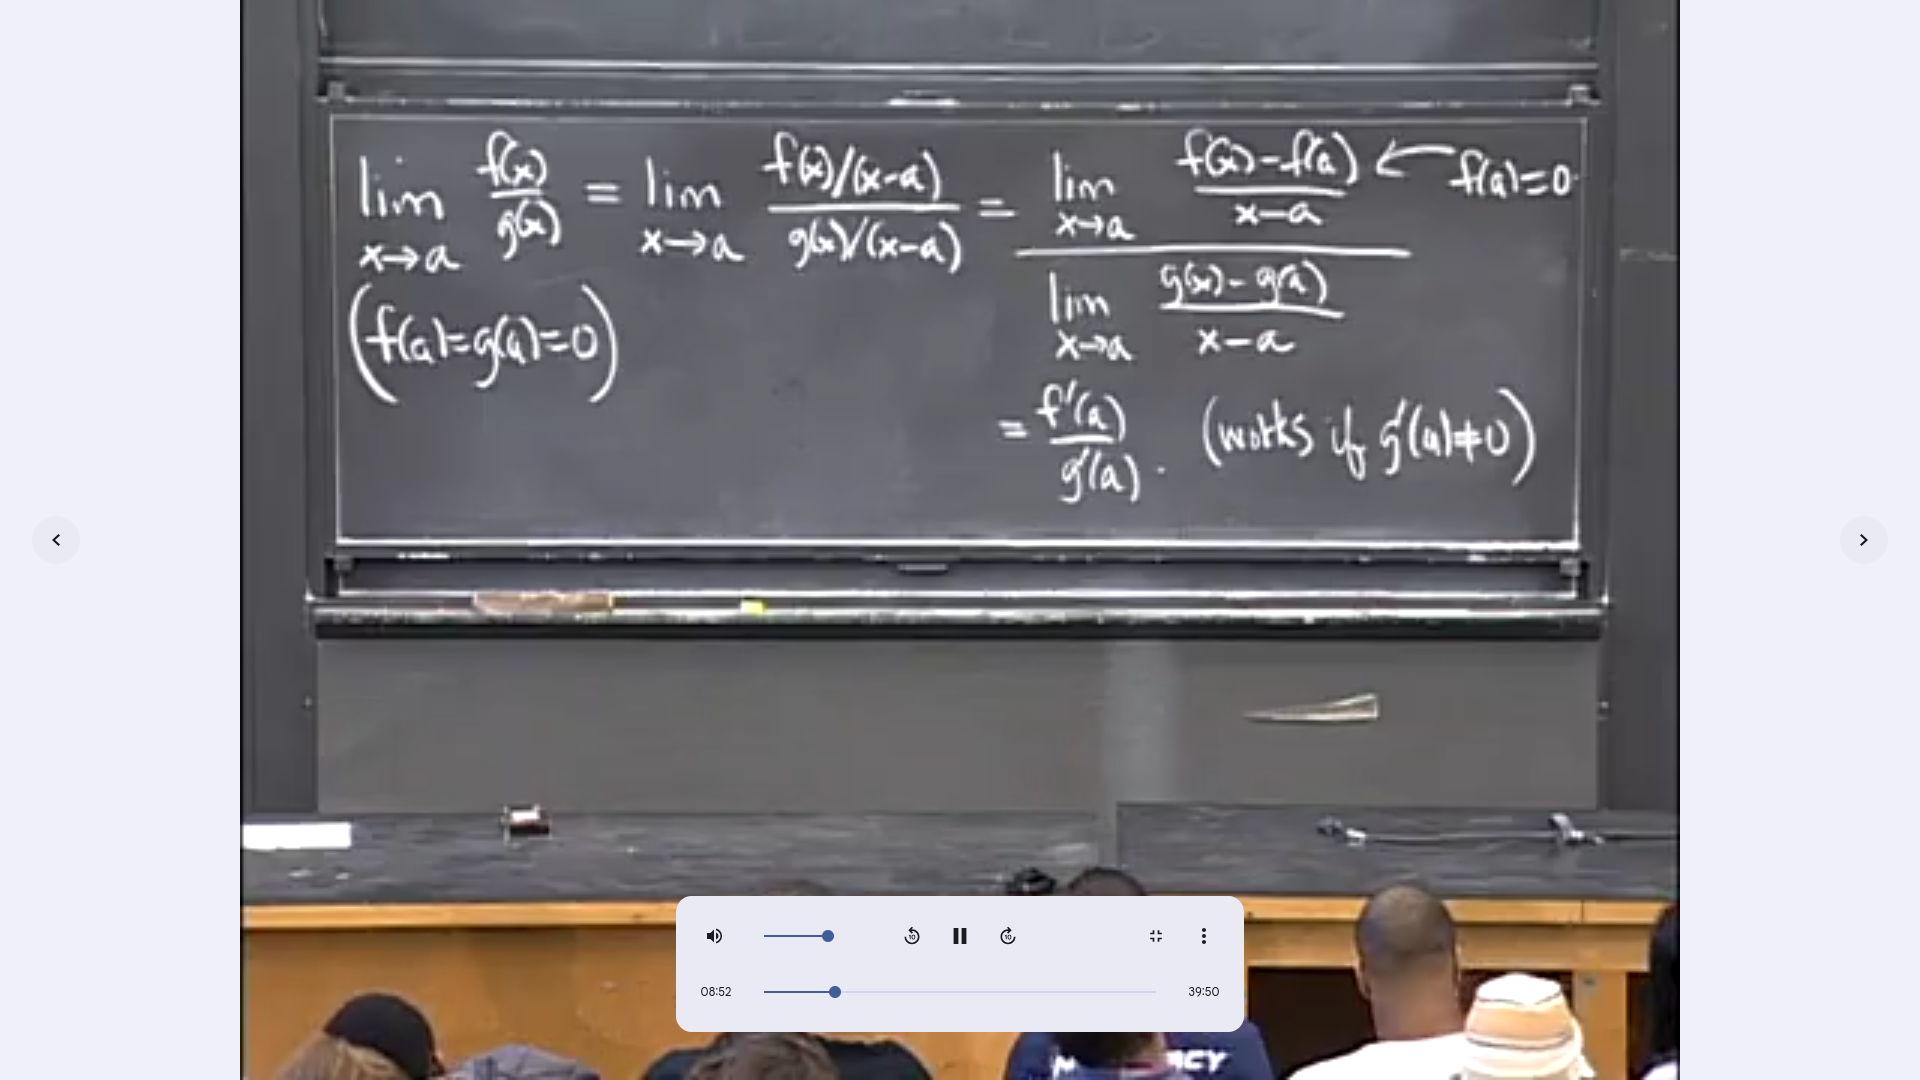 lim x→a f(x)/g(x) = lim x→a (f(x)/(x-a))/(g(x)/(x-a)) = (lim x→a (f(x)-f(a))/(x-a))/(lim x→a (g(x)-g(a))/(x-a)) ← f(a)=0
(f(a)=g(a)=0)
= f'(a)/g'(a). (works if g'(a)≠0)
10
10
08:52
39:50